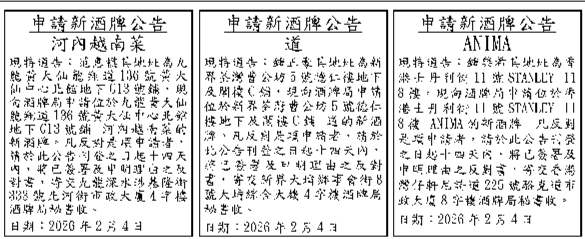 申請新酒牌公告
河內越南菜
現特通告：
其地址為九
龍黃大仙龍翔道136號黃大
仙中心北館地下G13號鋪，現
向酒牌局申請位於九龍黃大仙
龍翔道136號黃大仙中心北館
地下G13號鋪 河內越南菜的
新酒牌。凡反對是項申請者，
請於此公告刊登之日起十四天
內，將已簽署及申明理由之反
對書，寄交九龍深水埗基隆街
333號北河街市政大廈4字樓
酒牌局秘書收。
日期：2026年2月4日
申請新酒牌公告
道
現特通告：
其地址為新
界荃灣曹公坊5號德仁樓地下
及閣樓C鋪，現向酒牌局申請
位於新界荃灣曹公坊5號德仁
樓地下及閣樓C鋪 道的新酒
牌。凡反對是項申請者，請於
此公告刊登之日起十四天內，
將已簽署及申明理由之反對
書，寄交新界大埔鄉事會街8
號大埔綜合大樓4字樓酒牌局
秘書收。
日期：2026年2月4日
申請新酒牌公告
ANIMA
現特通告：
其地址為香
港士丹利街11號STANLEY 11
8樓，現向酒牌局申請位於香
港士丹利街11號STANLEY 11
8樓 ANIMA的新酒牌。凡反對
是項申請者，請於此公告刊登
之日起十四天內，將已簽署及
申明理由之反對書，寄交香港
灣仔軒尼詩道225號駱克道市
政大廈8字樓酒牌局秘書收。
日期：2026年2月4日